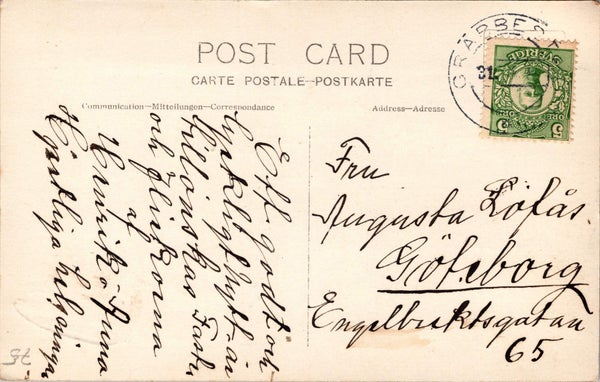 POST CARD
CARTE POSTALE–POSTKARTE
Communication–Mitteilungen–Correspondance
Address–Adresse
GRÄBBEST
31
SVERIGE
5 ÖRE 5
Ett godt och
lyckligt nytt år
tillönskas Faster
och flickorna
af
Henrik o. Anna
Hjärtliga helsningar
Fru
Augusta Löfås.
Göteborg
Engelbrektsgatan
65
75